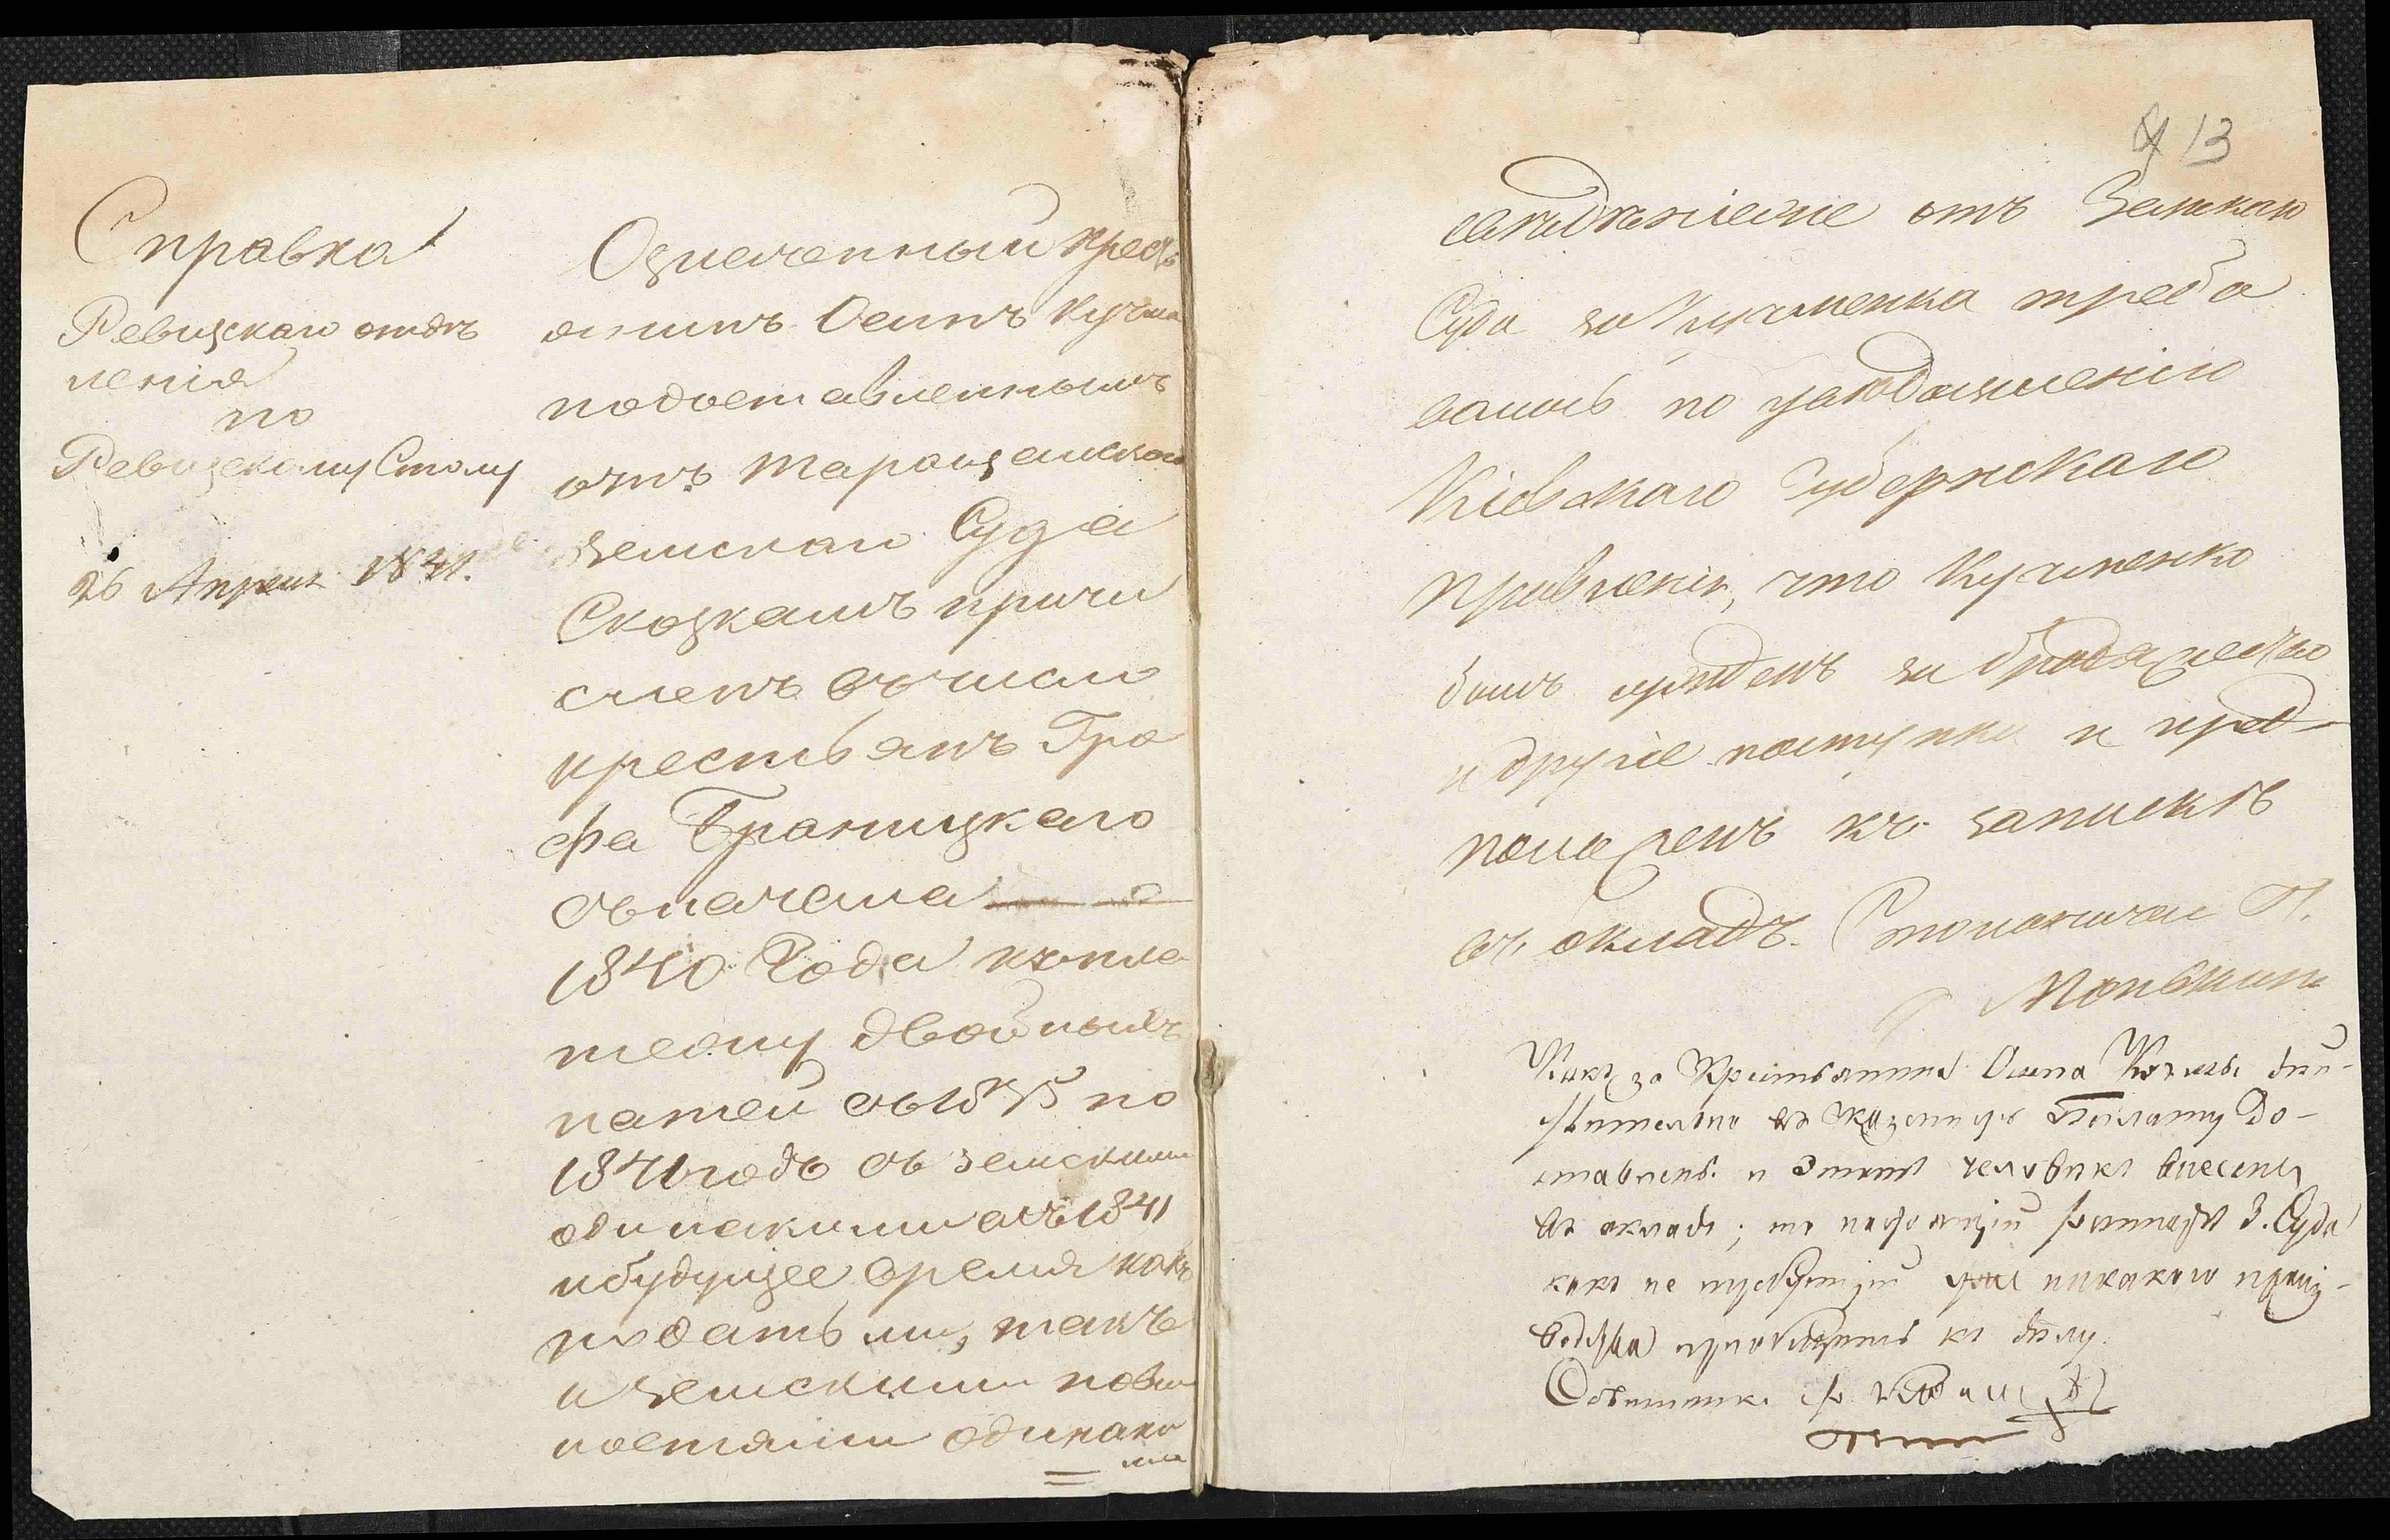 Справка
Ревизскаго отдѣ
ленія
по
Ревизскому Столу
26 Апрѣля 1841.
Означенный кресть
янинъ Осипъ Кучма
подоставленнымъ
отъ Таращанскаго
земскаго Суда
Сказкамъ причи
сленъ въ число
крестьянъ Гра
фа Браницкаго
съ начала
1840 Года къ пла
тежу двойныхъ
податей съ 1835 по
1841 годъ съ земскими
одинакими а съ 1841
и будущее время какъ
податьми, такъ
и земскими повин
ностями одинаки
ми
13
свидѣніе отъ Земскаго
Суда за Кучменка требо
валось по увѣдомленію
Кіевскаго Губернскаго
Правленія, что Кучменко
былъ суждѣнъ за бродяжество
и другіе поступки и пред-
положенъ къ запискѣ
въ окладъ. Столоначальн П.
Какъ за Крестьянина Осипа Кучмы дѣй-
ствительно въ Казенную Палату до-
ставлены и этотъ человѣкъ внесенъ
въ окладъ; то настоящій рапортъ З. Суда
какъ не требующій уже никакого произ-
водства пріобщить къ дѣлу.
Совѣтникъ